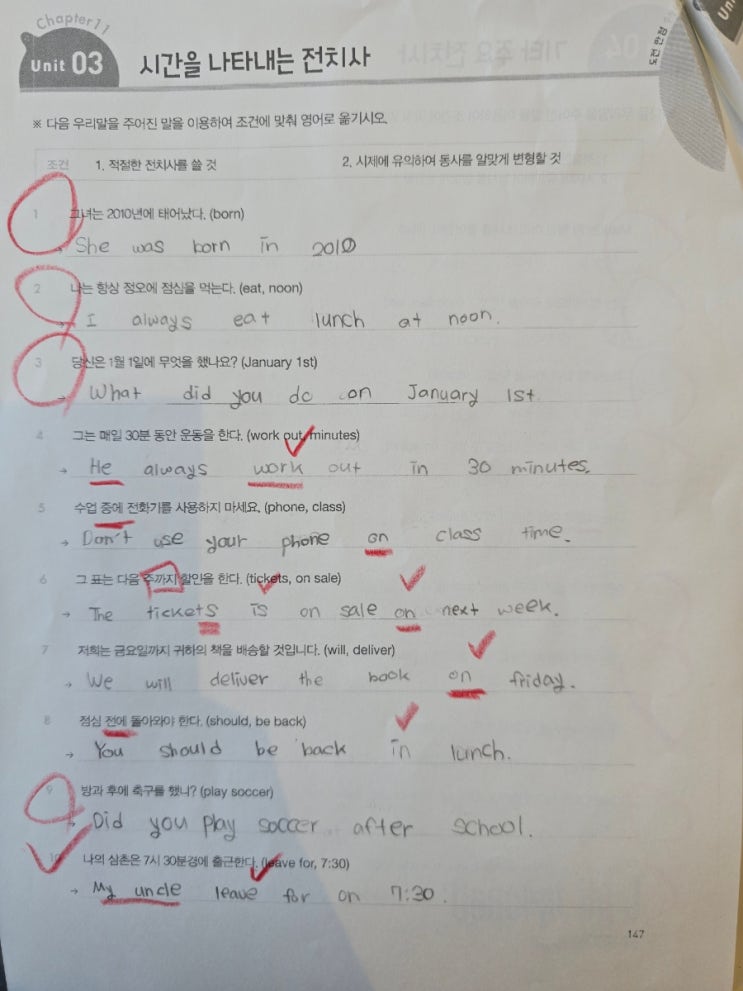 Chapter 11
Unit 03 시간을 나타내는 전치사
도전 만점
※ 다음 우리말을 주어진 말을 이용하여 조건에 맞춰 영어로 옮기시오.
조건 1. 적절한 전치사를 쓸 것 2. 시제에 유의하여 동사를 알맞게 변형할 것
1 그녀는 2010년에 태어났다. (born)
→ She was born in 2010
2 나는 항상 정오에 점심을 먹는다. (eat, noon)
→ I always eat lunch at noon.
3 당신은 1월 1일에 무엇을 했나요? (January 1st)
→ What did you do on January 1st.
4 그는 매일 30분 동안 운동을 한다. (work out, minutes)
→ He always work out in 30 minutes.
5 수업 중에 전화기를 사용하지 마세요. (phone, class)
→ Don't use your phone on class time.
6 그 표는 다음 주까지 할인을 한다. (tickets, on sale)
→ The tickets is on sale on next week.
7 저희는 금요일까지 귀하의 책을 배송할 것입니다. (will, deliver)
→ We will deliver the book on friday.
8 점심 전에 돌아와야 한다. (should, be back)
→ You should be back in lunch.
9 방과 후에 축구를 했니? (play soccer)
→ Did you play soccer after school.
10 나의 삼촌은 7시 30분경에 출근한다. (leave for, 7:30)
→ My uncle leave for on 7:30.
147